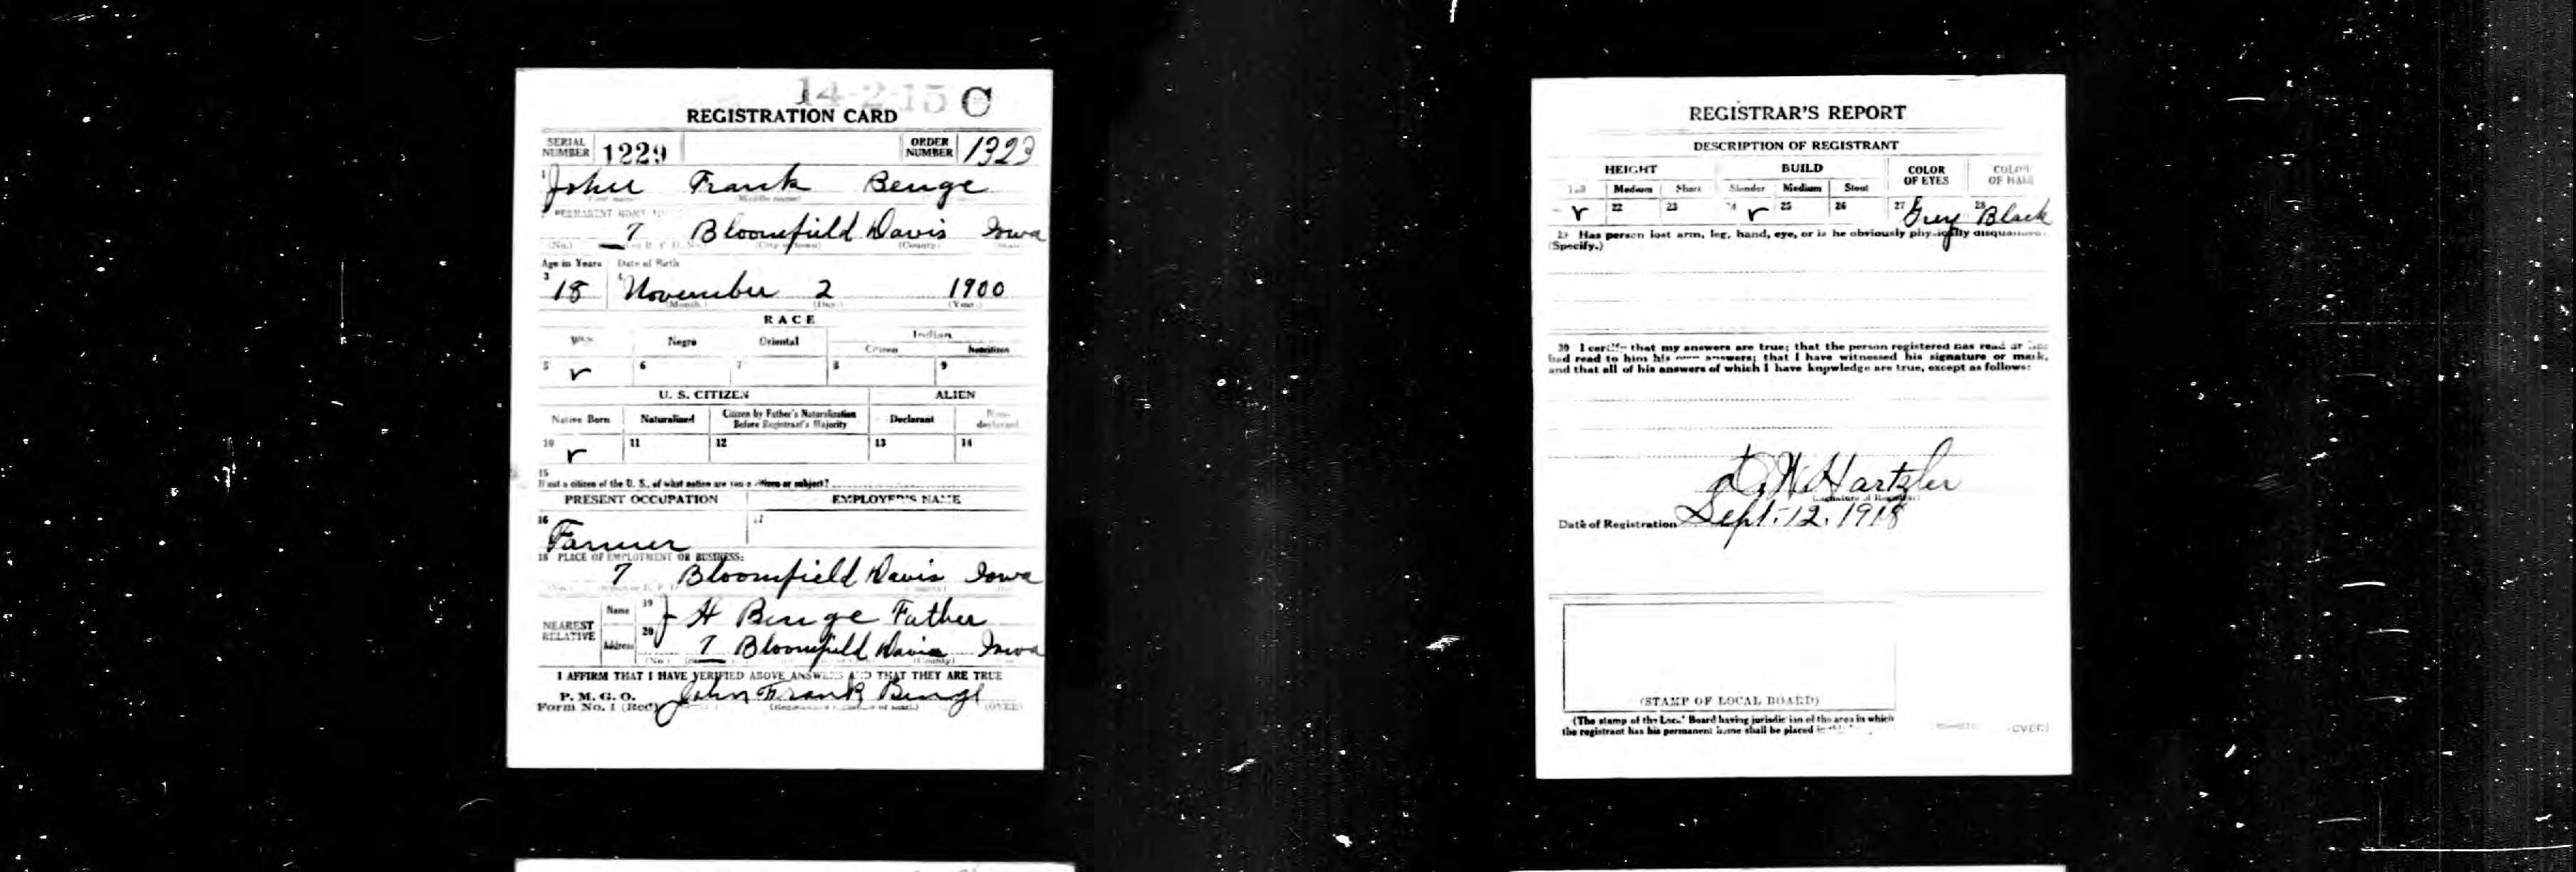 14-2-15 C
REGISTRATION CARD
SERIAL NUMBER 1229 ORDER NUMBER 1323
1 John Frank Benge
(First name) (Middle name)
PERMANENT HOME
7 Bloomfield Davis Iowa
(No.) (City or town) (County)
Age in Years Date of Birth
3 18 4 November 2 1900
(Month.) (Day.) (Year.)
RACE
Negro Oriental Indian
Citizen Noncitizen
5 v 6 7 8 9
U. S. CITIZEN ALIEN
Native Born Naturalized Citizen by Father's Naturalization Before Registrant's Majority Declarant Non-declarant
10 v 11 12 13 14
15
If not a citizen of the U. S., of what nation are you a citizen or subject?
PRESENT OCCUPATION EMPLOYER'S NAME
16 Farmer 17
18 PLACE OF EMPLOYMENT OR BUSINESS:
7 Bloomfield Davis Iowa
NEAREST RELATIVE Name 19 H Benge Father
Address 20 7 Bloomfield Davis Iowa
(No.) (County)
I AFFIRM THAT I HAVE VERIFIED ABOVE ANSWERS AND THAT THEY ARE TRUE
P. M. G. O.
Form No. 1 (Red) John Frank Benge
(OVER)
REGISTRAR'S REPORT
DESCRIPTION OF REGISTRANT
HEIGHT BUILD COLOR OF EYES COLOR OF HAIR
Tall Medium Short Slender Medium Stout
v 22 23 24 v 25 26 27 Grey 28 Black
29 Has person lost arm, leg, hand, eye, or is he obviously physically disqualified?
(Specify.)
30 I certify that my answers are true; that the person registered has read or has
had read to him his own answers; that I have witnessed his signature or mark,
and that all of his answers of which I have knowledge are true, except as follows:
Hartzler
(Signature of Registrar)
Date of Registration Sept. 12. 1918
(STAMP OF LOCAL BOARD)
(The stamp of the Local Board having jurisdiction of the area in which
the registrant has his permanent home shall be placed in
(OVER)